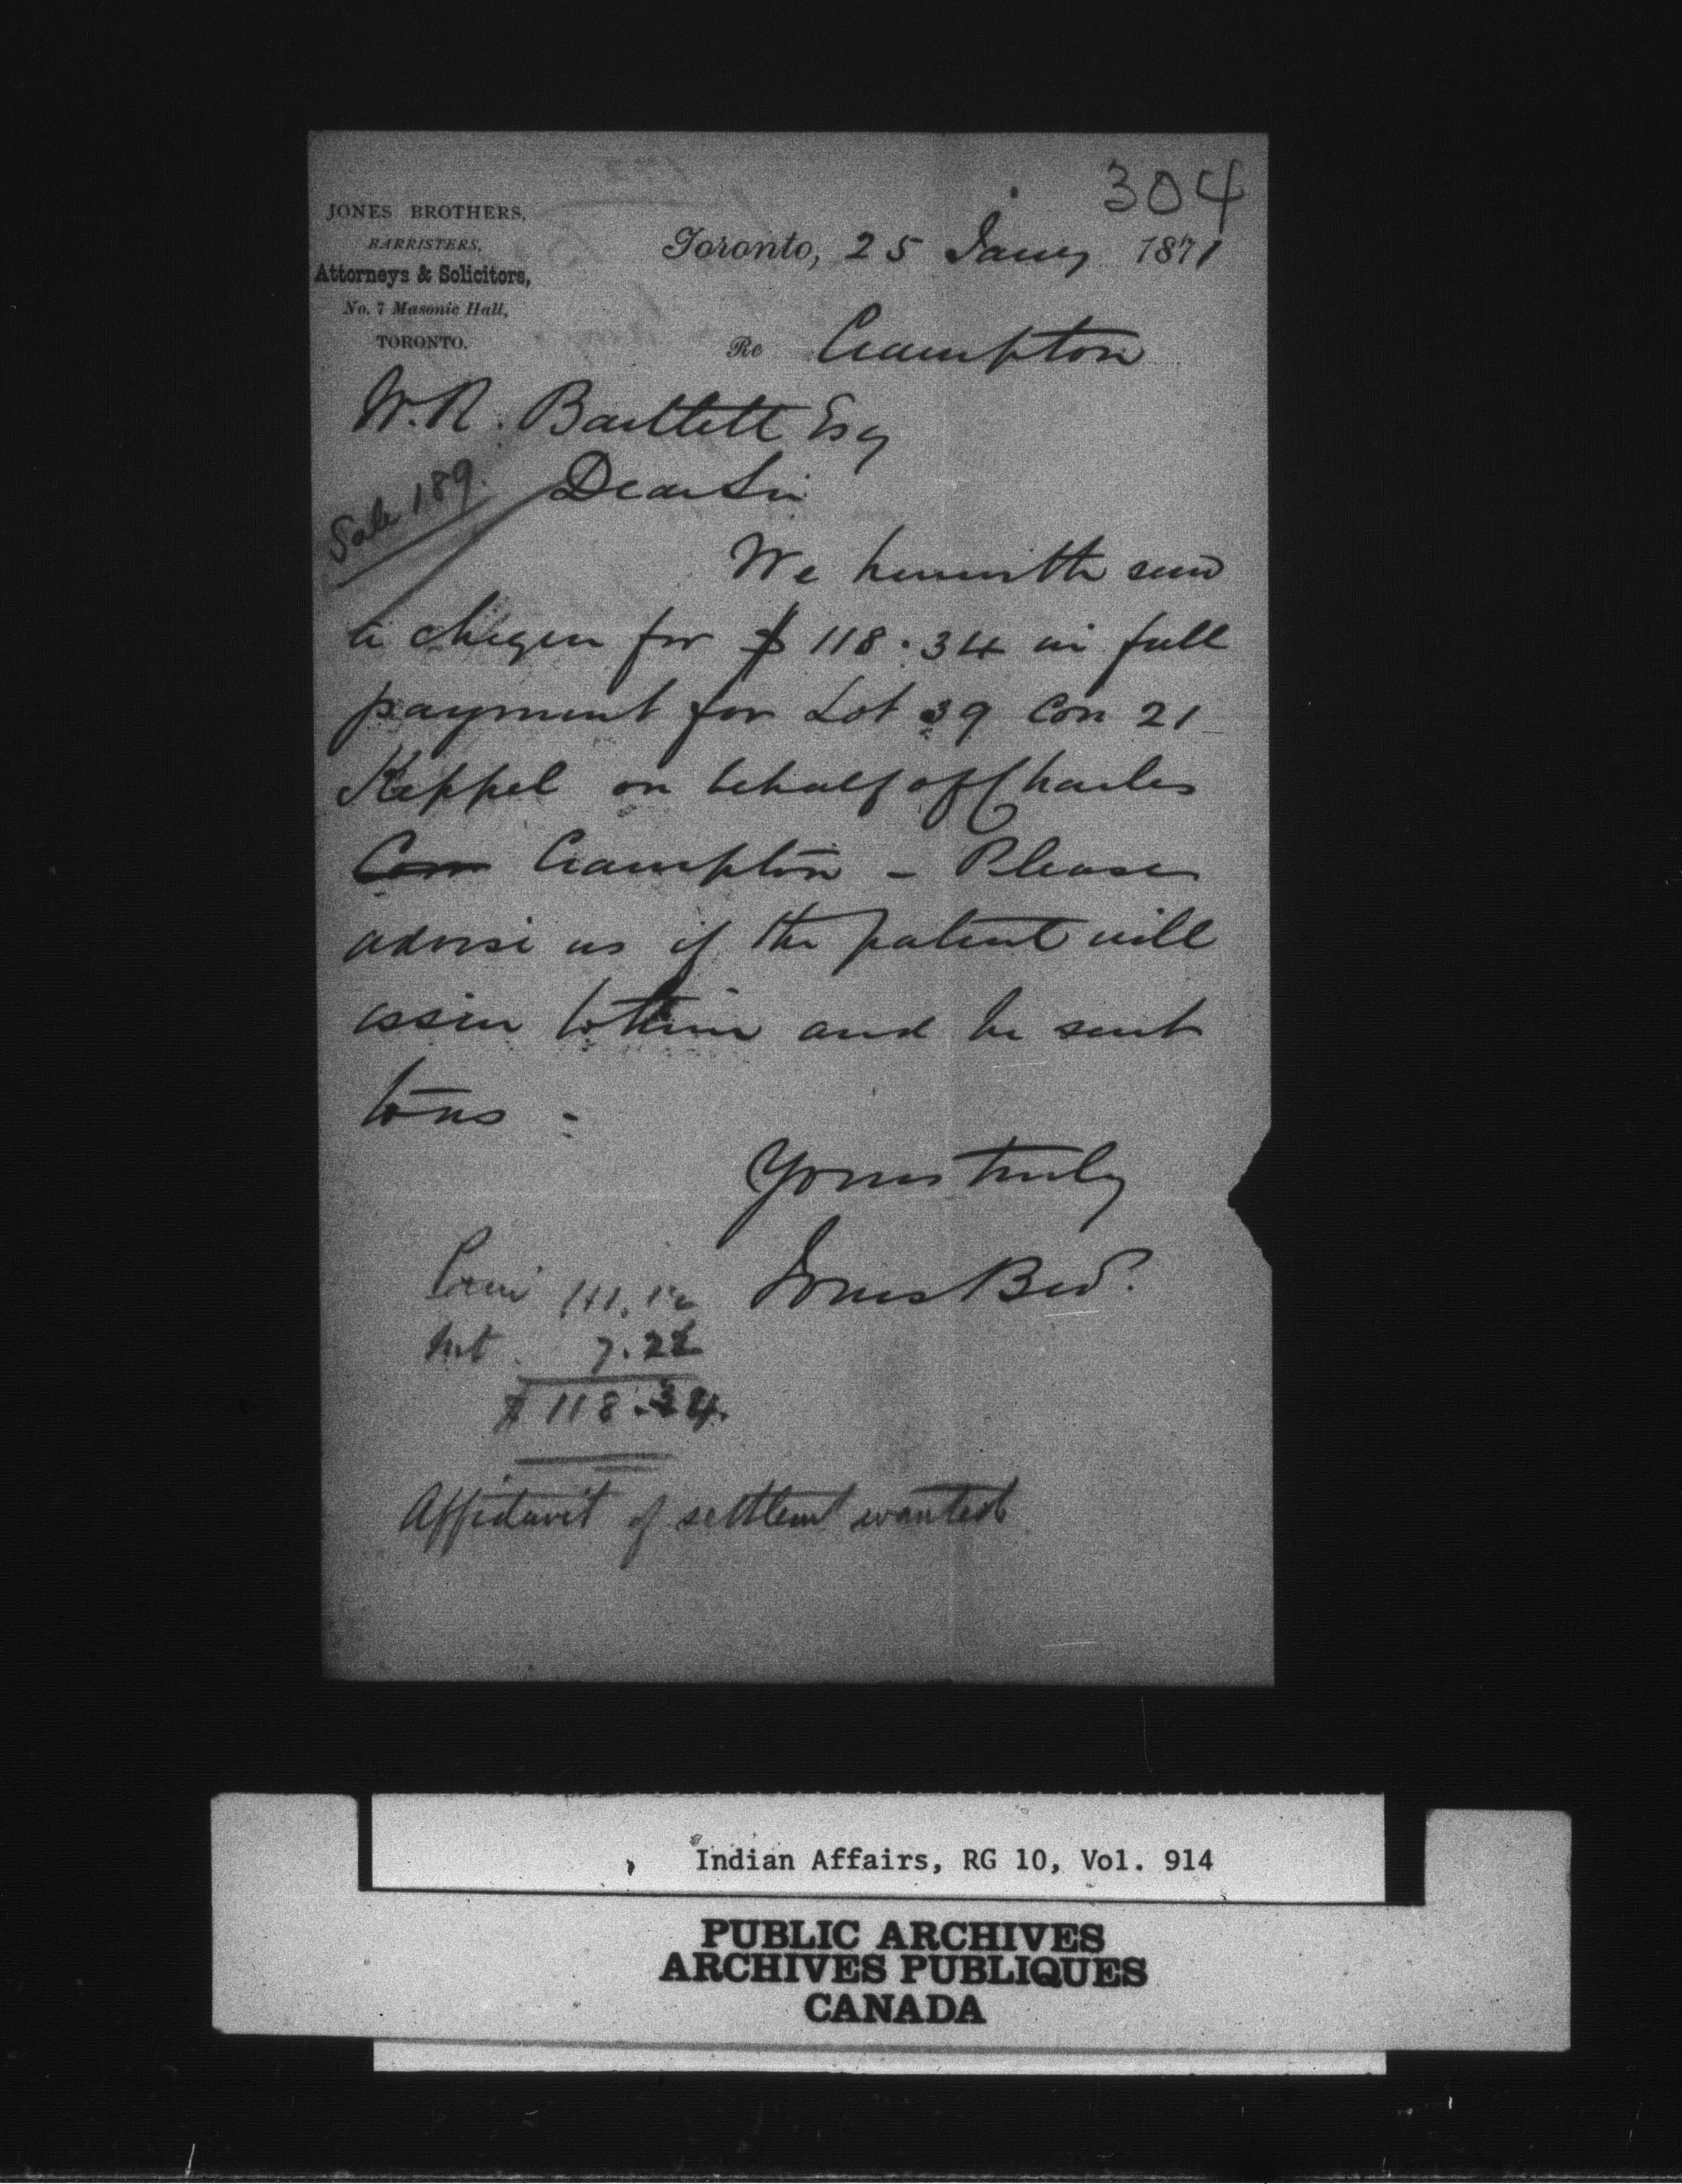 304
JONES BROTHERS,
BARRISTERS,
Attorneys & Solicitors,
No. 7 Masonic Hall,
TORONTO.
Toronto, 25 Jany 1871
Re Crampton
W.R. Bartlett Esq
Sale 189.
Dear Sir
We herewith send
a cheque for $118.34 in full
payment for Lot 39 Con 21
Keppel on behalf of Charles
Crampton - Please
advise us if the patent will
issue to him and be sent
to us -
Yours truly
Jones Bros.
Prin 111.12
Int 7.22
$118.34
Affidavit of settlemt wanted
Indian Affairs, RG 10, Vol. 914
PUBLIC ARCHIVES
ARCHIVES PUBLIQUES
CANADA